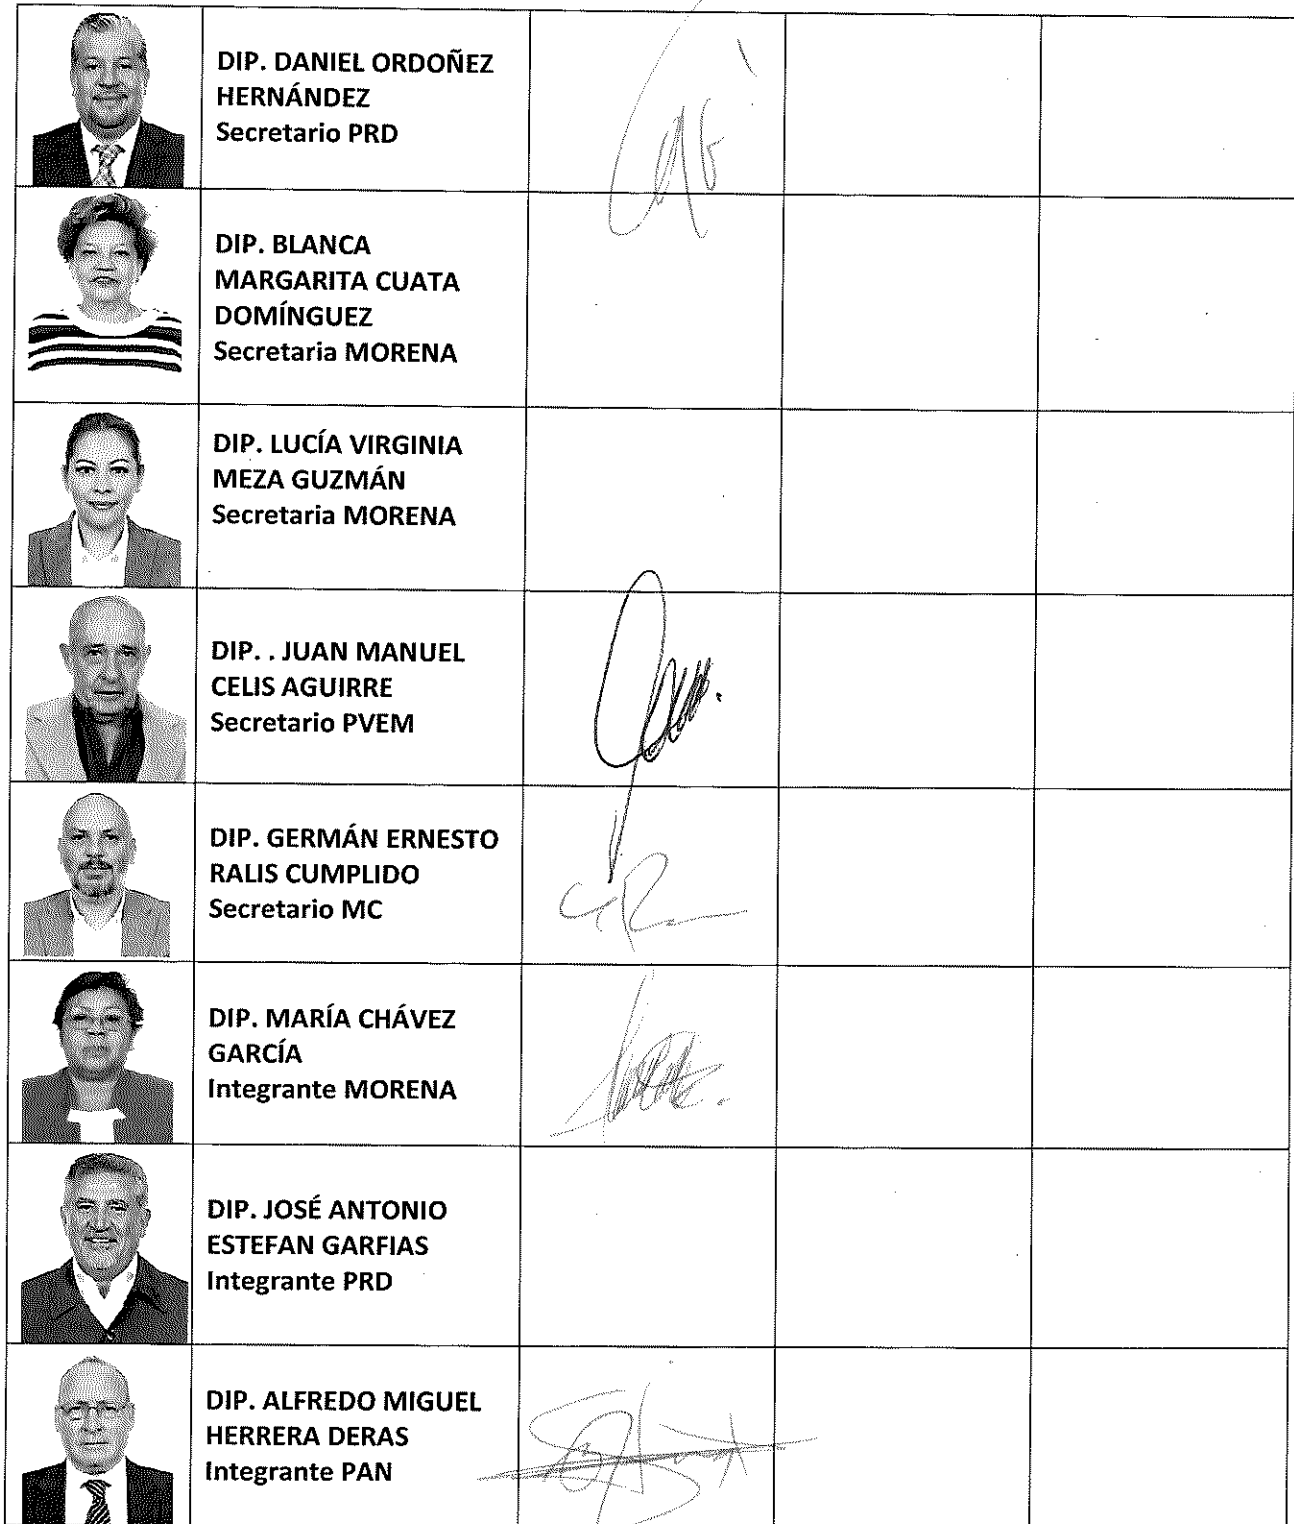 DIP. DANIEL ORDOÑEZ
HERNÁNDEZ
Secretario PRD
DIP. BLANCA
MARGARITA CUATA
DOMÍNGUEZ
Secretaria MORENA
DIP. LUCÍA VIRGINIA
MEZA GUZMÁN
Secretaria MORENA
DIP. . JUAN MANUEL
CELIS AGUIRRE
Secretario PVEM
DIP. GERMÁN ERNESTO
RALIS CUMPLIDO
Secretario MC
DIP. MARÍA CHÁVEZ
GARCÍA
Integrante MORENA
DIP. JOSÉ ANTONIO
ESTEFAN GARFIAS
Integrante PRD
DIP. ALFREDO MIGUEL
HERRERA DERAS
Integrante PAN